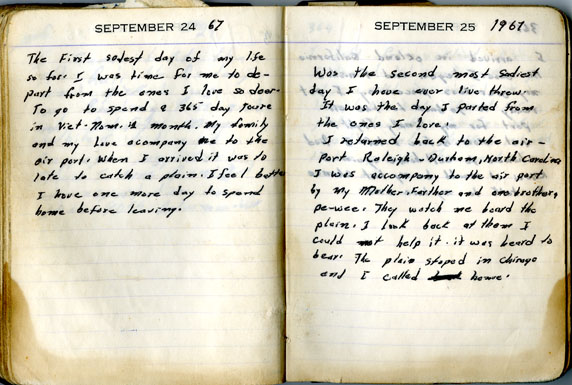 SEPTEMBER 24 67
The First sadest day of my life
so for. I was time for me to de-
part from the ones I love so dear.
To go to spend a 365 day toure
in Viet-Nam. 12 month. My family
and my Love acompany me to the
air port. When I arrived it was to
late to catch a plain. I feel better
I have one more day to spend
home before leaving.
SEPTEMBER 25 1967
Was the second most sadiest
day I have ever live threw.
It was the day I parted from
the ones I Love.
I returned back to the air-
port Raleigh-Durham, North Carolina
I was accompany to the air port
by my Mother, Farther and one brother,
pe-wee. They watch me board the
plain. I look back at them I
could not help it. it was heard to
bear. The plain stoped in chicago
and I called home.